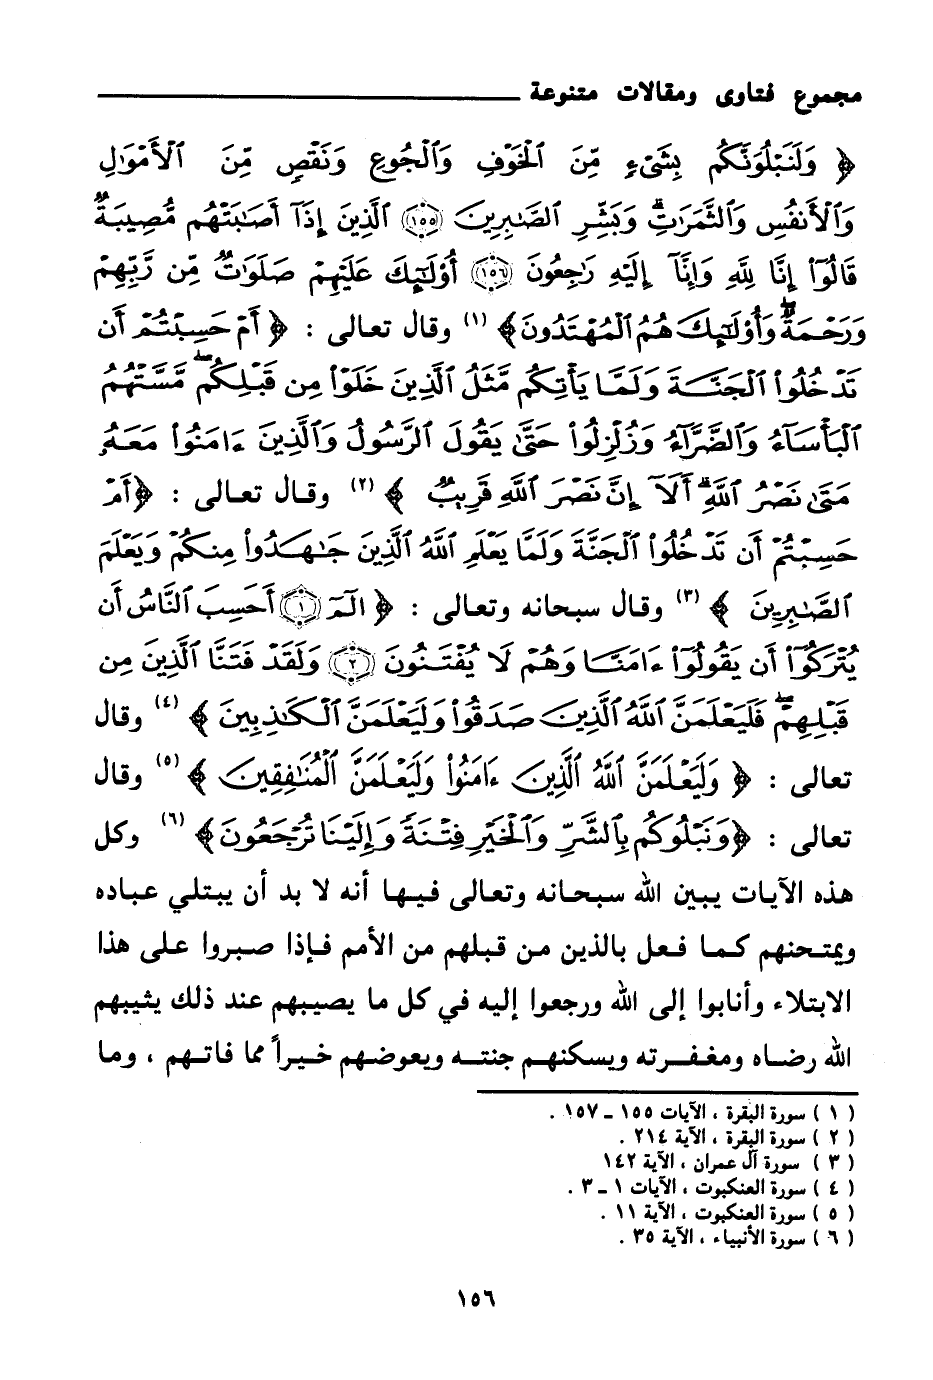 مجموع فتاوى ومقالات متنوعة
﴿ وَلَنَبْلُوَنَّكُم بِشَىْءٍ مِّنَ ٱلْخَوْفِ وَٱلْجُوعِ وَنَقْصٍ مِّنَ ٱلْأَمْوَٰلِ
وَٱلْأَنفُسِ وَٱلثَّمَرَٰتِ ۗ وَبَشِّرِ ٱلصَّـٰبِرِينَ (١٥٥) ٱلَّذِينَ إِذَآ أَصَـٰبَتْهُم مُّصِيبَةٌ
قَالُوٓا۟ إِنَّا لِلَّهِ وَإِنَّآ إِلَيْهِ رَٰجِعُونَ (١٥٦) أُو۟لَـٰٓئِكَ عَلَيْهِمْ صَلَوَٰتٌ مِّن رَّبِّهِمْ
وَرَحْمَةٌ ۖ وَأُو۟لَـٰٓئِكَ هُمُ ٱلْمُهْتَدُونَ ﴾ (١) وقال تعالى : ﴿ أَمْ حَسِبْتُمْ أَن
تَدْخُلُوا۟ ٱلْجَنَّةَ وَلَمَّا يَأْتِكُم مَّثَلُ ٱلَّذِينَ خَلَوْا۟ مِن قَبْلِكُم ۖ مَّسَّتْهُمُ
ٱلْبَأْسَآءُ وَٱلضَّرَّآءُ وَزُلْزِلُوا۟ حَتَّىٰ يَقُولَ ٱلرَّسُولُ وَٱلَّذِينَ ءَامَنُوا۟ مَعَهُۥ
مَتَىٰ نَصْرُ ٱللَّهِ ۗ أَلَآ إِنَّ نَصْرَ ٱللَّهِ قَرِيبٌ ﴾ (٢) وقال تعالى : ﴿ أَمْ
حَسِبْتُمْ أَن تَدْخُلُوا۟ ٱلْجَنَّةَ وَلَمَّا يَعْلَمِ ٱللَّهُ ٱلَّذِينَ جَـٰهَدُوا۟ مِنكُمْ وَيَعْلَمَ
ٱلصَّـٰبِرِينَ ﴾ (٣) وقال سبحانه وتعالى : ﴿ الٓمٓ (١) أَحَسِبَ ٱلنَّاسُ أَن
يُتْرَكُوٓا۟ أَن يَقُولُوٓا۟ ءَامَنَّا وَهُمْ لَا يُفْتَنُونَ (٢) وَلَقَدْ فَتَنَّا ٱلَّذِينَ مِن
قَبْلِهِمْ ۖ فَلَيَعْلَمَنَّ ٱللَّهُ ٱلَّذِينَ صَدَقُوا۟ وَلَيَعْلَمَنَّ ٱلْكَـٰذِبِينَ ﴾ (٤) وقال
تعالى : ﴿ وَلَيَعْلَمَنَّ ٱللَّهُ ٱلَّذِينَ ءَامَنُوا۟ وَلَيَعْلَمَنَّ ٱلْمُنَـٰفِقِينَ ﴾ (٥) وقال
تعالى : ﴿ وَنَبْلُوكُم بِٱلشَّرِّ وَٱلْخَيْرِ فِتْنَةً وَإِلَيْنَا تُرْجَعُونَ ﴾ (٦) وكل
هذه الآيات يبين الله سبحانه وتعالى فيها أنه لا بد أن يبتلي عباده
ويمتحنهم كما فعل بالذين من قبلهم من الأمم فإذا صبروا على هذا
الابتلاء وأنابوا إلى الله ورجعوا إليه في كل ما يصيبهم عند ذلك يثيبهم
الله رضاه ومغفرته ويسكنهم جنته ويعوضهم خيراً مما فاتهم ، وما
( ١ ) سورة البقرة ، الآيات ١٥٥ ـ ١٥٧ .
( ٢ ) سورة البقرة ، الآية ٢١٤ .
( ٣ ) سورة آل عمران ، الآية ١٤٢
( ٤ ) سورة العنكبوت ، الآيات ١ ـ ٣ .
( ٥ ) سورة العنكبوت ، الآية ١١ .
( ٦ ) سورة الأنبياء ، الآية ٣٥ .
١٥٦